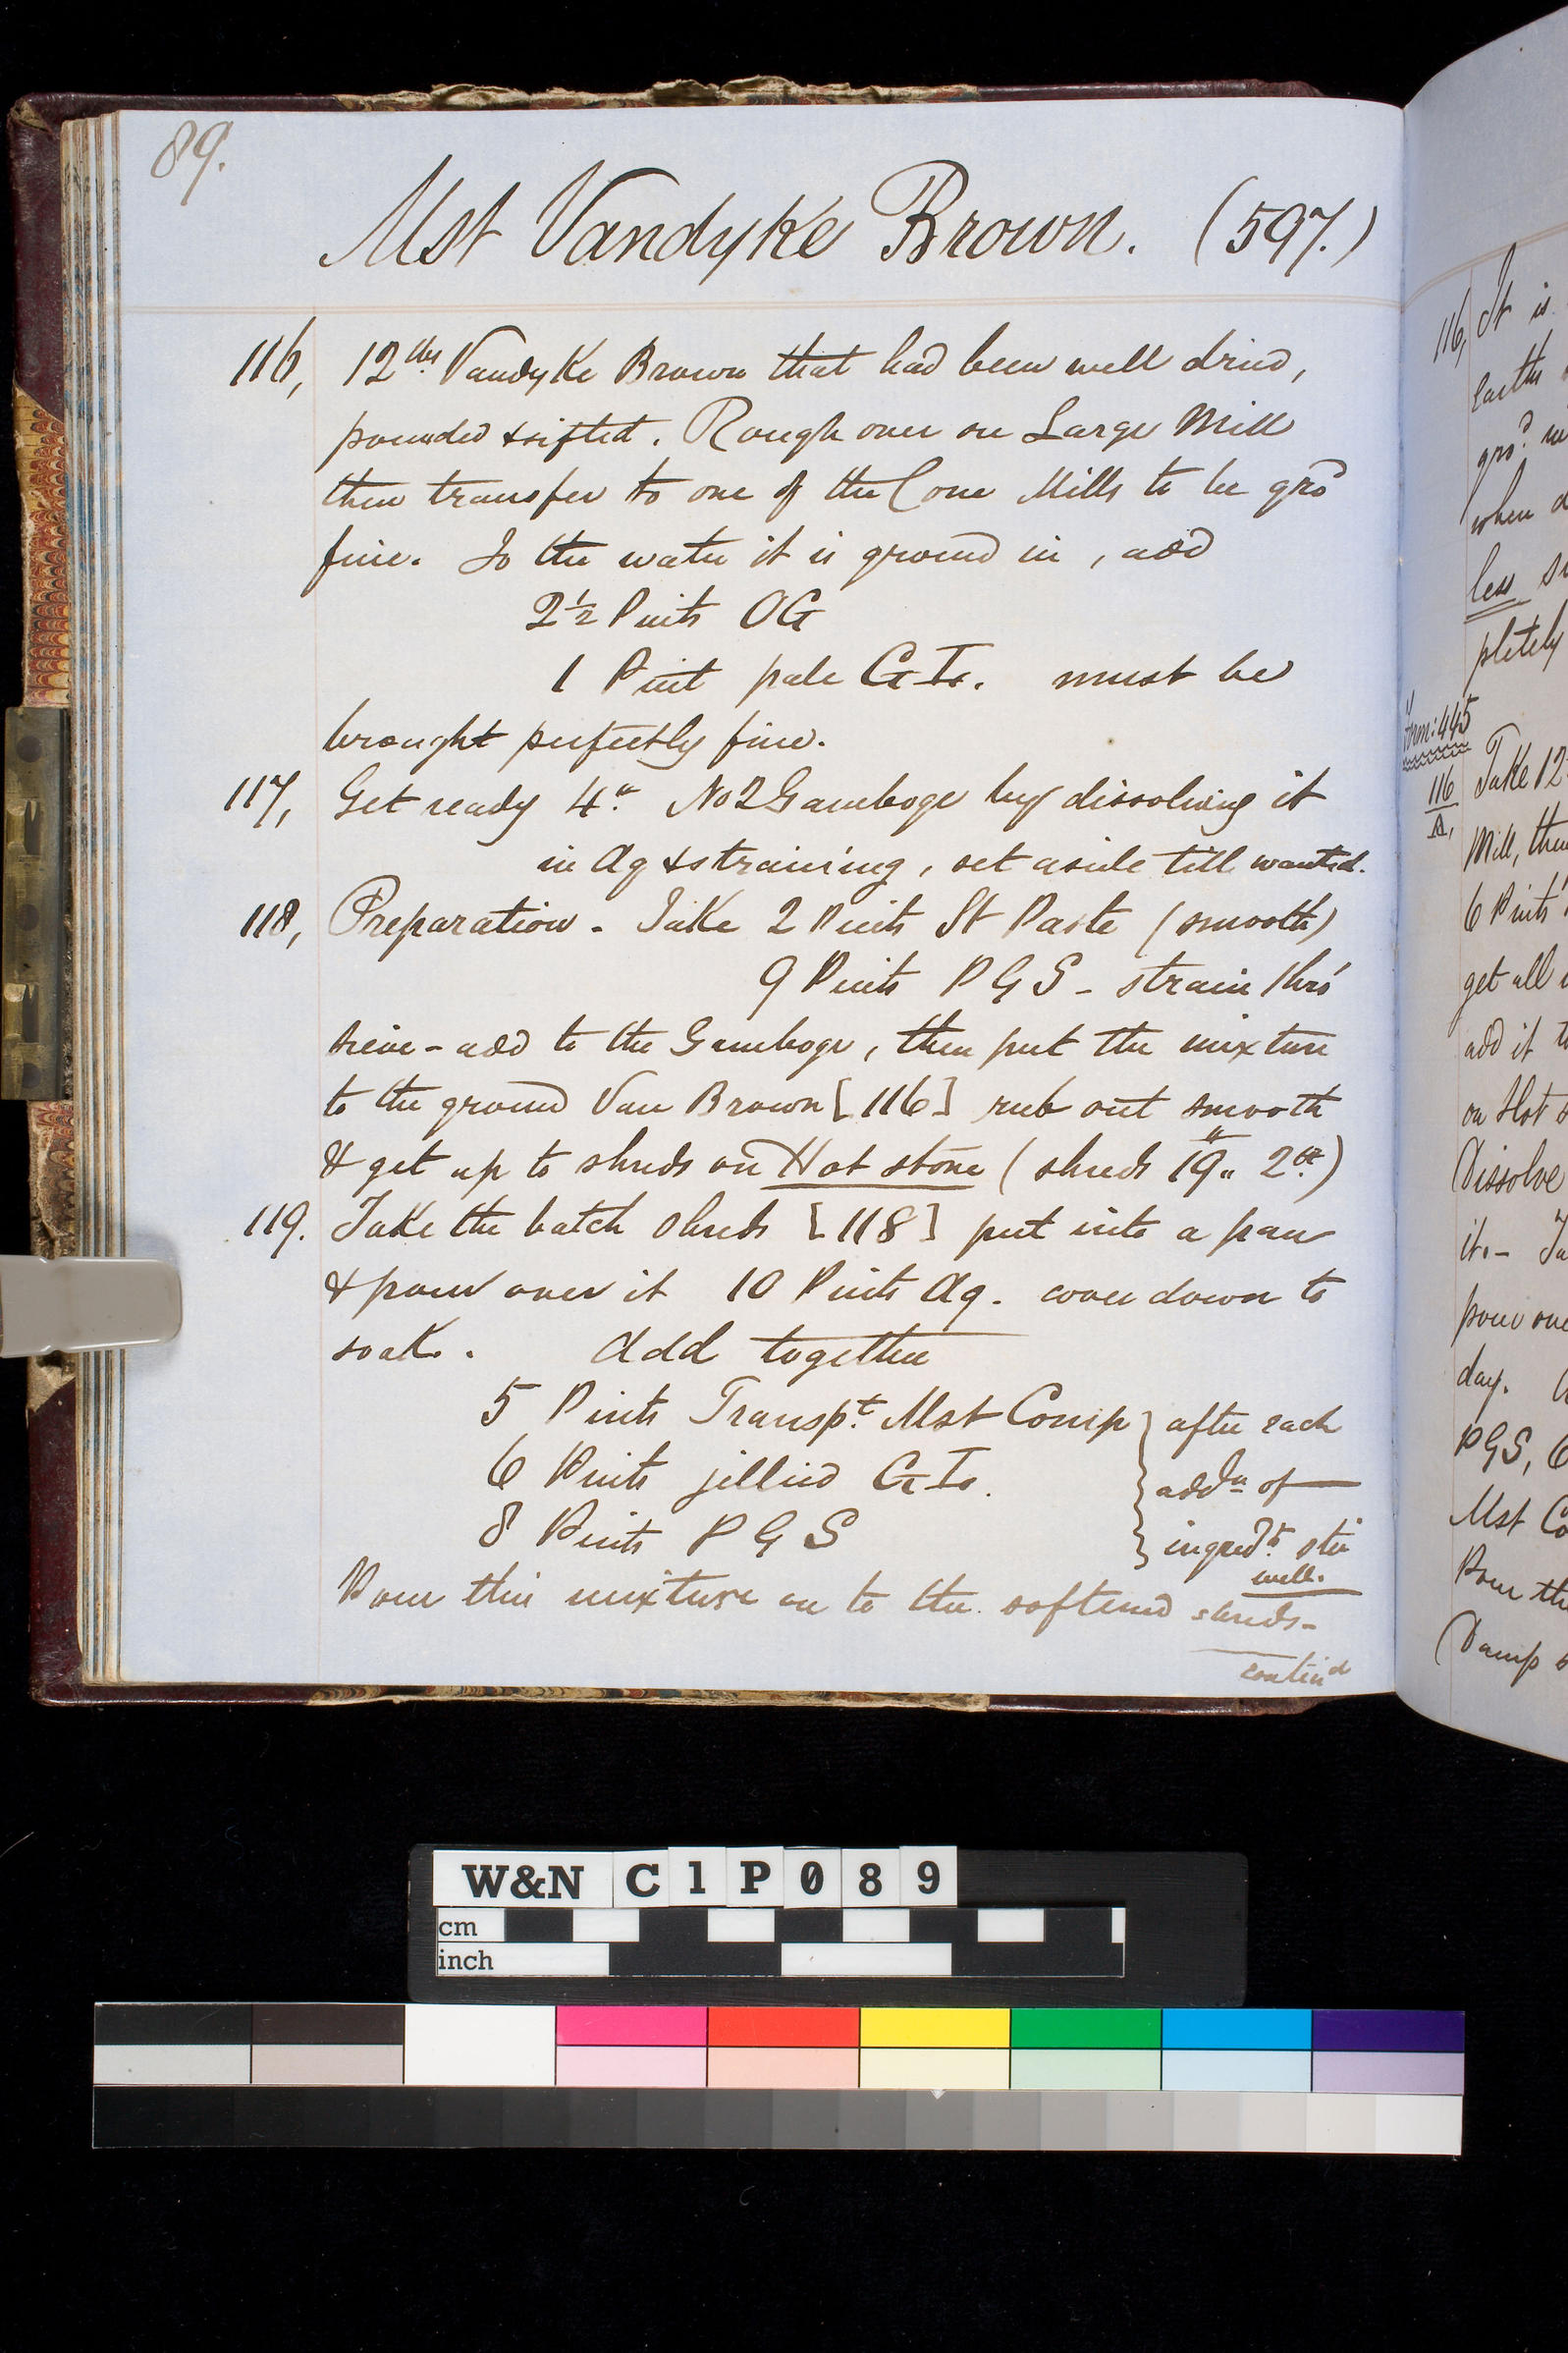 89.
Mst Vandyke Brown. (597.)
116, 12 lbs Vandyke Brown that had been well dried,
pounded & sifted. Rough over on Large Mill
then transfer to one of the Cone Mills to be gro^d
fine. To the water it is ground in, add
2½ Pints OG
1 Pint pale G Tr. must be
brought perfectly fine.
117, Get ready 4" No 2 Gamboge by dissolving it
in Aq & straining, set aside till wanted.
118, Preparation - Take 2 Pints St Paste (smooth)
9 Pints P G S - strain thro'
sieve - add to the Gamboge, then put the mixture
to the ground Van Brown [116] rub out smooth
& get up to shreds on Hot stone (shreds 19" 2 oz)
119. Take the batch shreds [118] put into a pan
& pour over it 10 Pints Aq. cover down to
soak. Add together
5 Pints Transp^t Mst Comp } after each
6 Pints jellied G Tr. } add^n of
8 Pints P G S } ingred^ts stir
well.
Pour this mixture on to the softened shreds -
contin^d
116, It is
Earths
gro^d
when
less
pletely
Form: 445
116
A,
Take 12
Mill, then
6 Pints
get all
add it
on Hot
(Dissolve
it. -
pour
day.
PGS, 6
Mst
Pour
(Damp
W&N C1P089
cm
inch